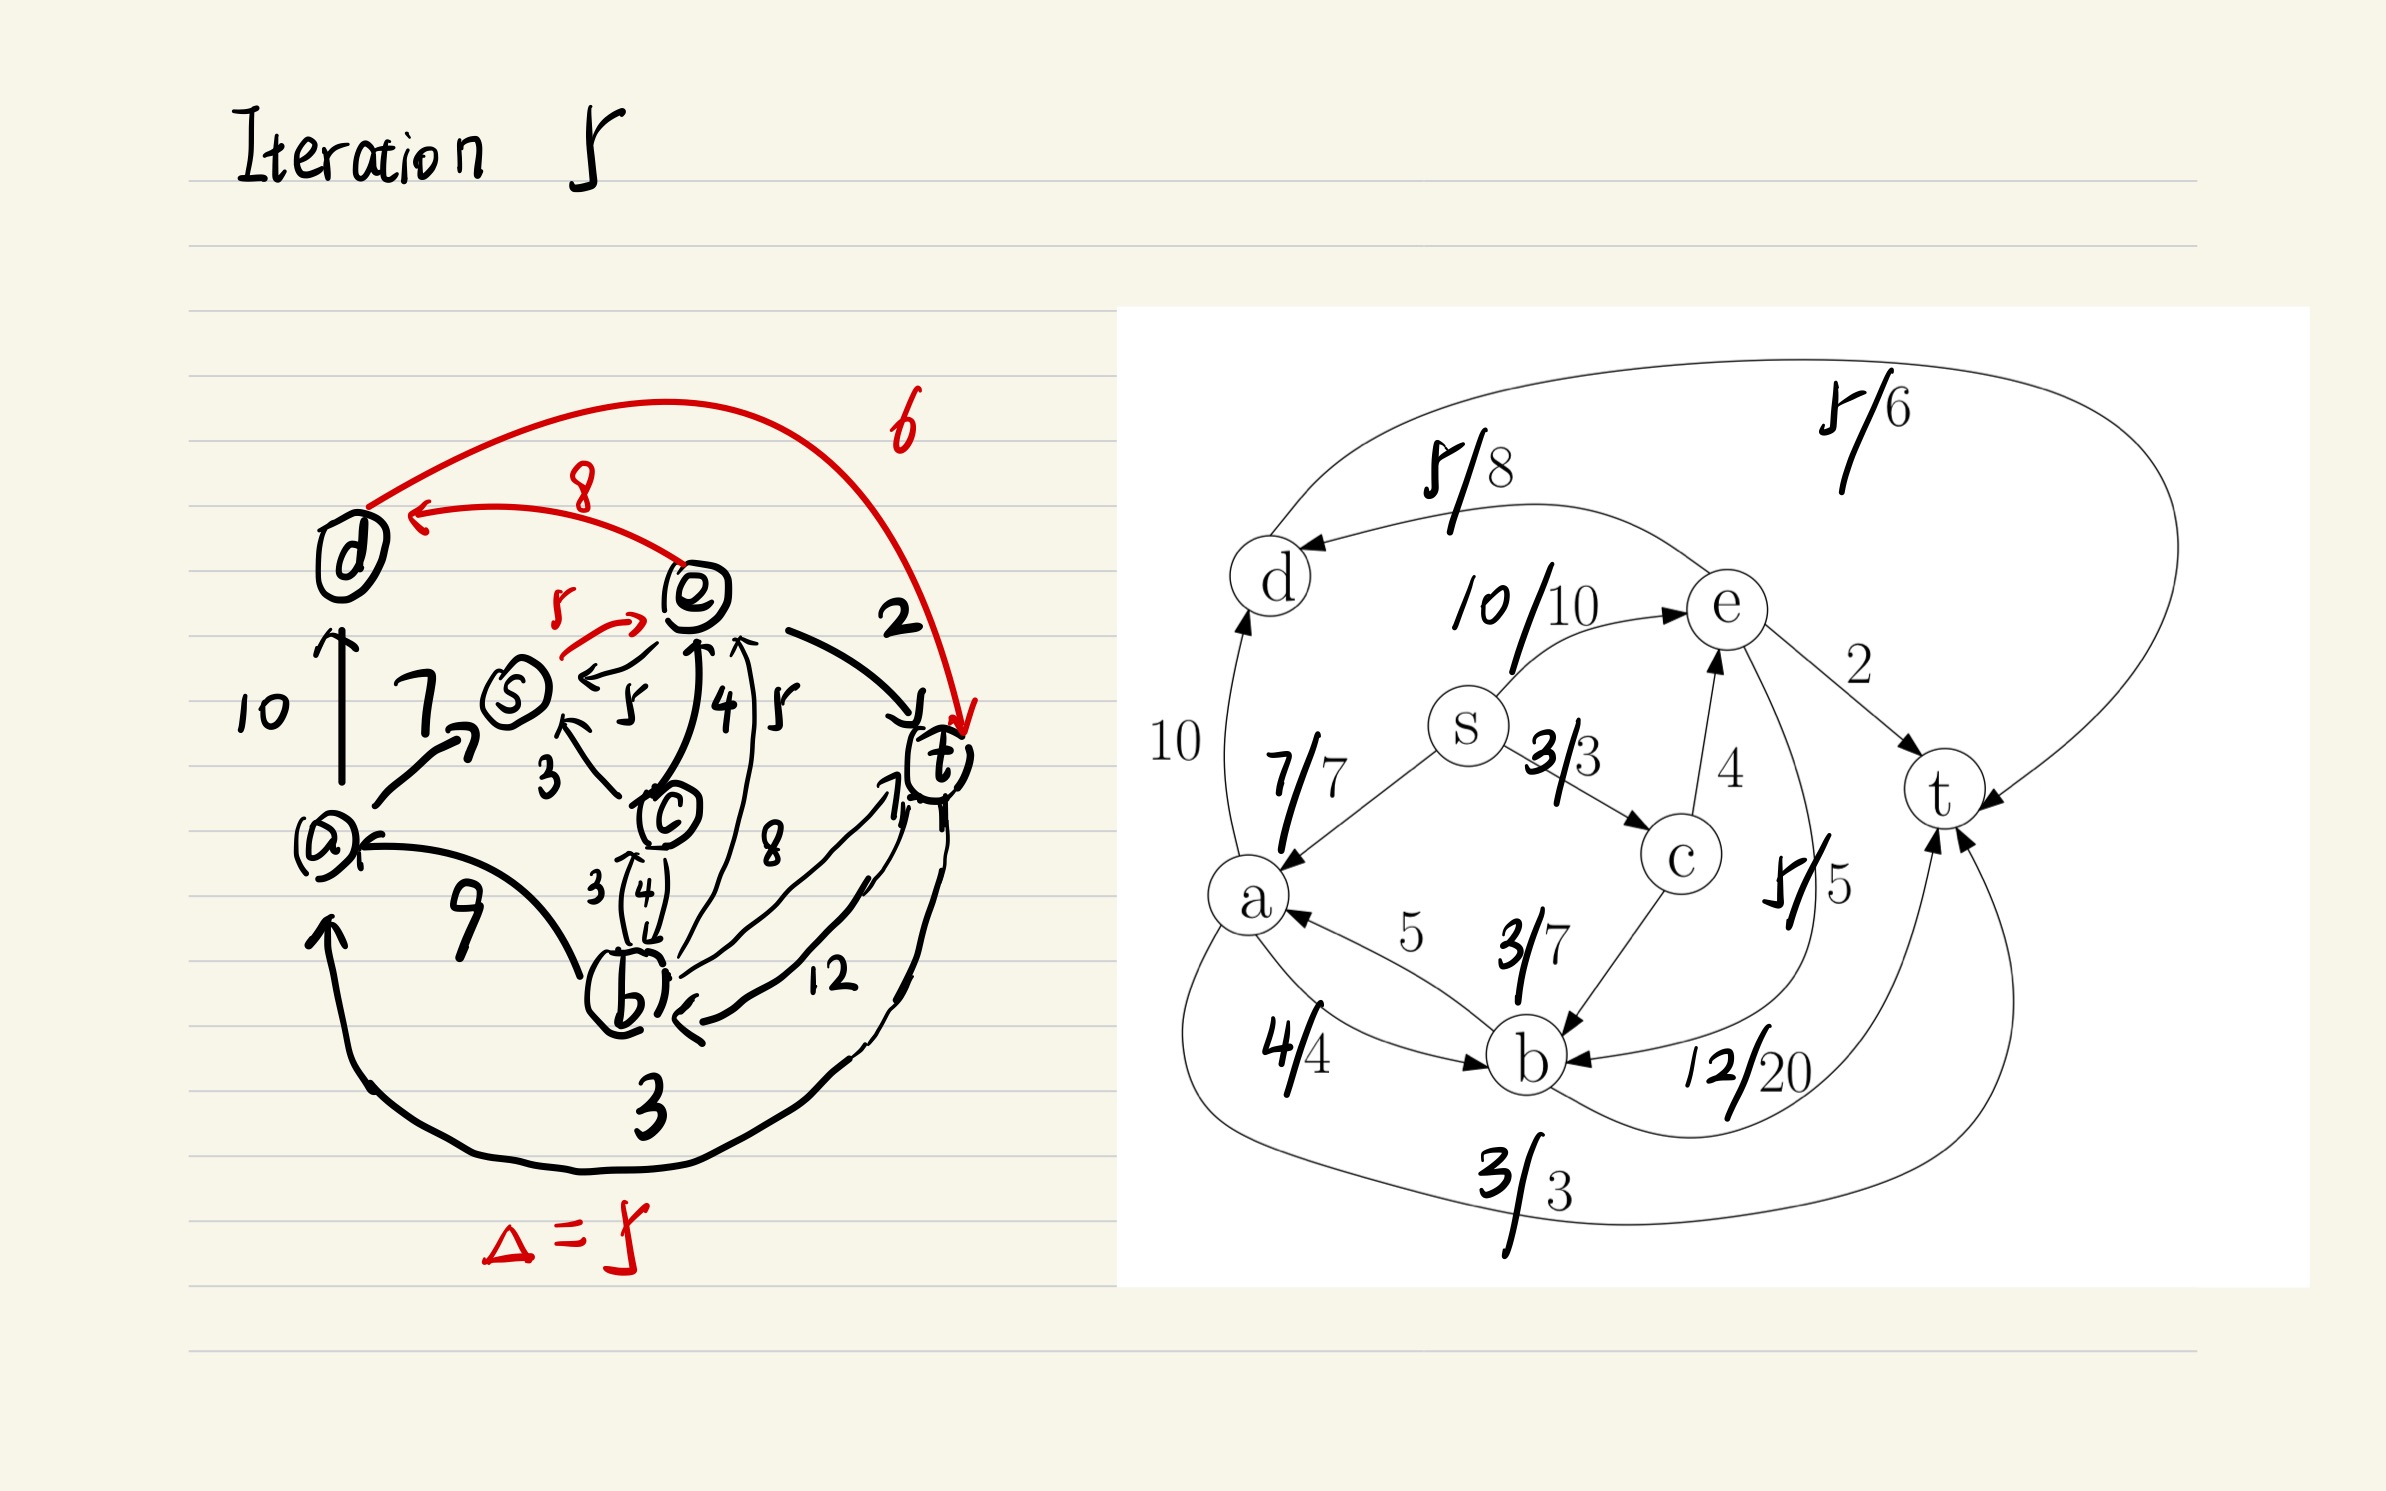 Iteration 5
6
8
d
5
e
2
10
7
s
5
4
5
t
3
a
c
8
9
3
4
b
12
3
Δ = 5
5/6
5/8
d
10/10
e
2
s
10
7/7
3/3
4
t
a
c
5/5
5
3/7
4/4
b
12/20
3/3